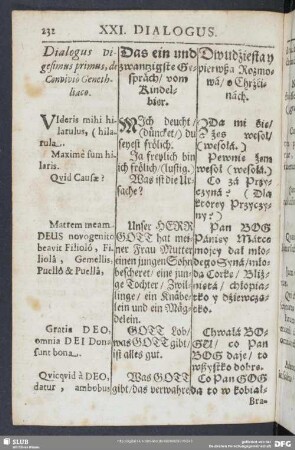 232 XXI. DIALOGUS.
Dialogus vi-
gesimus primus, de
Convivio Geneth-
liaco.
VIderis mihi hi-
laculus, (hila-
rula.
Maximè sum hi-
laris.
Qvid Causæ?
Matrem meam
DEUS novogenito
beavit Filiolô, Fi-
liolâ, Gemellis,
Puellô & Puellâ,
Gratia DEO,
omnia DEI Dona
sunt bona.
Qvicqvid à DEO
datur, ambobus
Das ein und
zwanzigste Ge-
spräch/ vom
Kindel-
bier.
MIch deucht/
(düncket/) du
seyest frölich.
Ja freylich bin
ich frölich/(lustig.)
Was ist die Ur-
sache?
Unser HERR
GOTT hat mei-
ner Frau Mutter
einen jungen Sohn
bescheret/ eine jun-
ge Tochter/ Zwil-
linge/ ein Knäbe-
lein und ein Mäg-
delein.
GOTT Lob/
was GOTT gibt/
ist alles gut.
Was GOTT
gibt/das verwahre
Dwudźiesta y
pierwßa Rozmo-
wá/ o Chrzći-
nách.
ZDa mi się/
żes wesoł/
(wesołá.)
Pewnie żem
wesoł (wesołá.)
Co zá Przy-
czyná? (Dla
ktorey Przyczy-
ny?)
Pan BOG
Pániey Mátce
mojey dał mło-
dego Syná/ mło-
dą Corkę/ Bliź-
niętá/ chłopiąt-
ko y dźiewcząt-
ko.
Chwałá BO-
GU/ co Pan
BOG daje/ to
wßystko dobre.
Co Pan BOG
da to w kobiał-
Bra-
SLUB
DFG